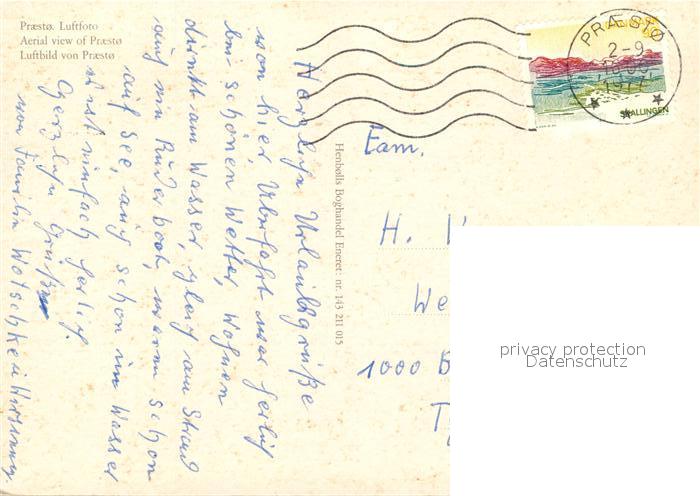 Præstø. Luftfoto
Aerial view of Præstø
Luftbild von Præstø
Herzliche Urlaubsgrüße
von hier. Überfahrt war herlich
bei schönen Wetter, Wohnen
direkt am Wasser, gleich am Strand
auch ein Ruderboot, waren schon
auf See, auch schon im Wasser
ist einfach herlich.
Herzliche Grüße
von Familie
Henbølls Boghandel Eneret: nr. 143 211 015
PRÆSTØ
2-9
DANMARK
SKALLINGEN
Fam.
H.
We
1000 B
privacy protection
Datenschutz